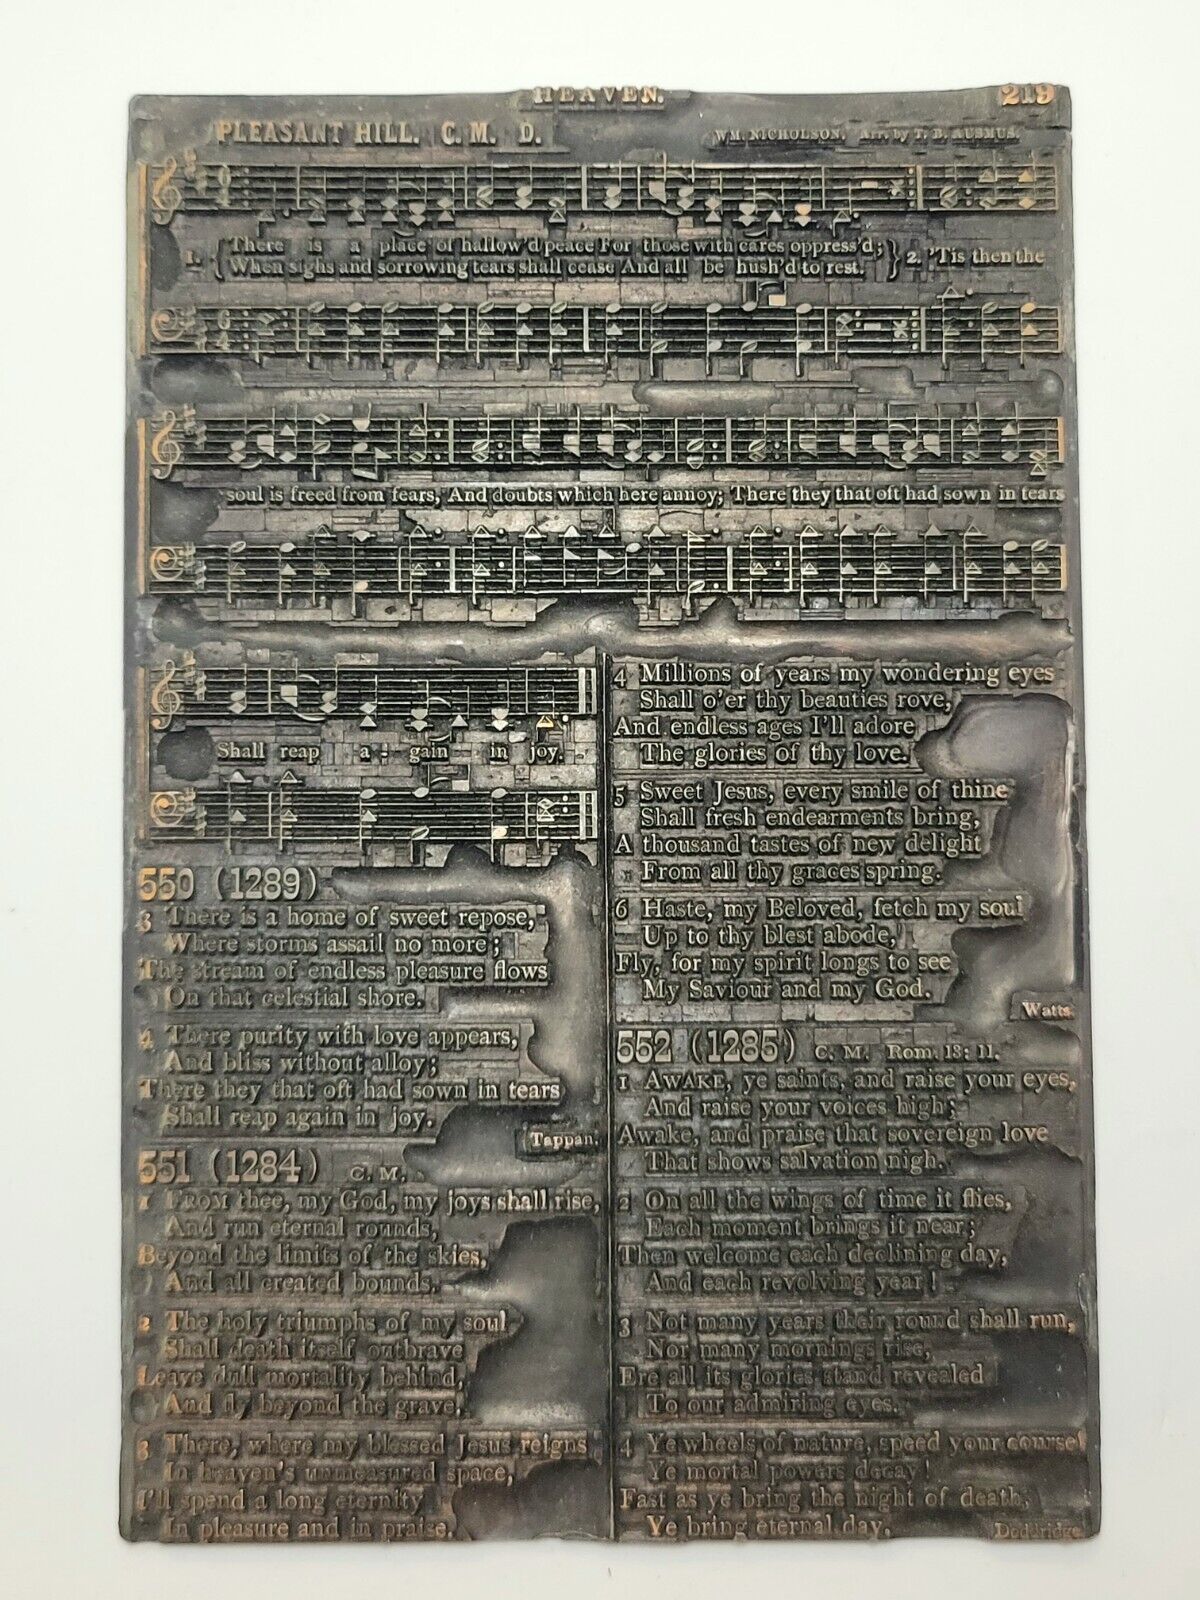 HEAVEN.
219
PLEASANT HILL. C. M. D.
WM. NICHOLSON. Arr. by T. B. AUSMUS.
1. { There is a place of hallow'd peace For those with cares oppress'd; } 2. 'Tis then the
When sighs and sorrowing tears shall cease And all be hush'd to rest.
soul is freed from fears, And doubts which here annoy; There they that oft had sown in tears
Shall reap a - gain in joy.
550 (1289)
3 There is a home of sweet repose,
Where storms assail no more;
The stream of endless pleasure flows
On that celestial shore.
4 There purity with love appears,
And bliss without alloy;
There they that oft had sown in tears
Shall reap again in joy.
Tappan.
551 (1284) C. M.
1 FROM thee, my God, my joys shall rise,
And run eternal rounds,
Beyond the limits of the skies,
And all created bounds.
2 The holy triumphs of my soul
Shall death itself outbrave
Leave dull mortality behind,
And fly beyond the grave.
3 There, where my blessed Jesus reigns
In heaven's unmeasured space,
I'll spend a long eternity
In pleasure and in praise.
4 Millions of years my wondering eyes
Shall o'er thy beauties rove,
And endless ages I'll adore
The glories of thy love.
5 Sweet Jesus, every smile of thine
Shall fresh endearments bring,
A thousand tastes of new delight
From all thy graces spring.
6 Haste, my Beloved, fetch my soul
Up to thy blest abode,
Fly, for my spirit longs to see
My Saviour and my God.
Watts.
552 (1285) C. M. Rom. 13: 11.
1 AWAKE, ye saints, and raise your eyes,
And raise your voices high;
Awake, and praise that sovereign love
That shows salvation nigh.
2 On all the wings of time it flies,
Each moment brings it near;
Then welcome each declining day,
And each revolving year!
3 Not many years their round shall run,
Nor many mornings rise,
Ere all its glories stand revealed
To our admiring eyes.
4 Ye wheels of nature, speed your course
Ye mortal powers decay!
Fast as ye bring the night of death,
Ye bring eternal day.
Doddridge